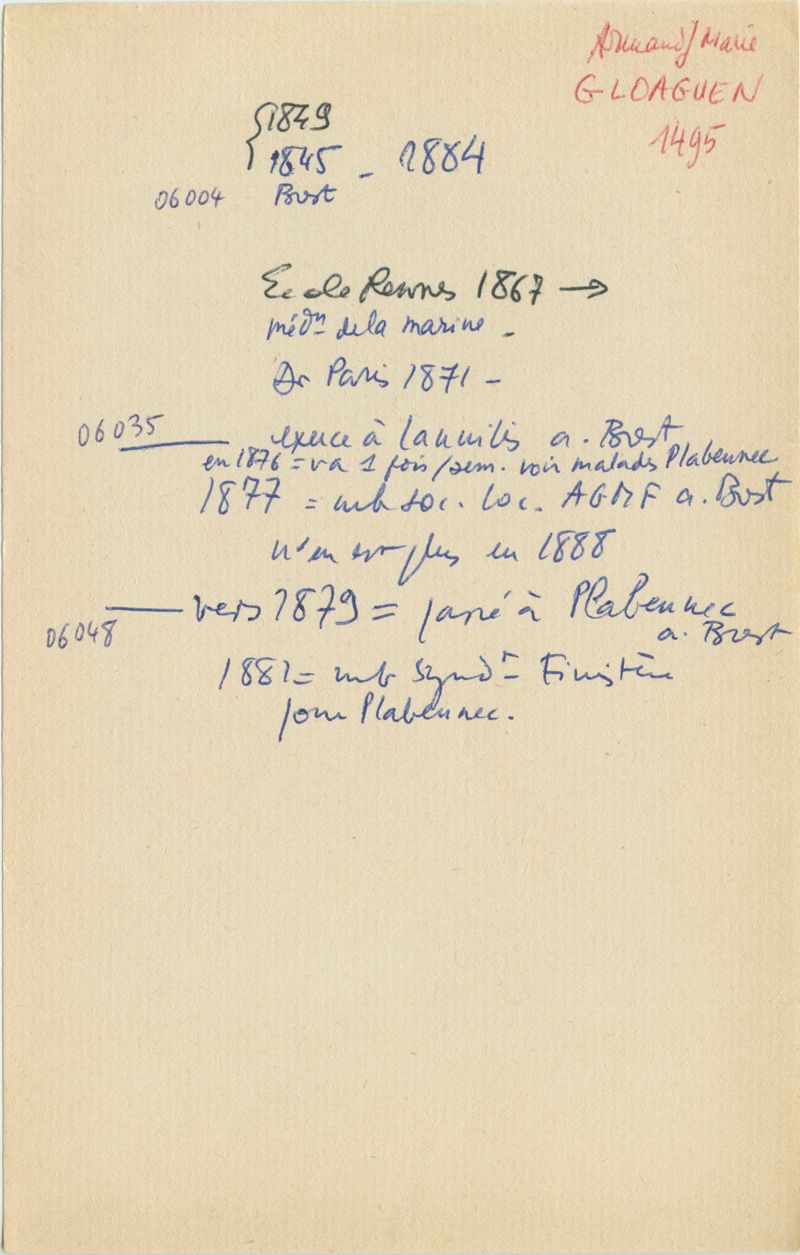 Armand Marie
GLOAGUEN
1495
{1849
1845 - 1884
06004 Brest
Ecole Rennes 1867 →
médn de la marine -
Dr Paris 1871 -
06035 exerce à Lannilis a. Brest
en 1876 = va 1 fois/sem. voir malades Plabennec
1877 = mb soc. loc. AGMF a. Brest
n'en est plus en 1888
06048 vers 1879 = passé à Plabennec
a. Brest
1881 = mb Syndt Finistère
pour Plabennec.